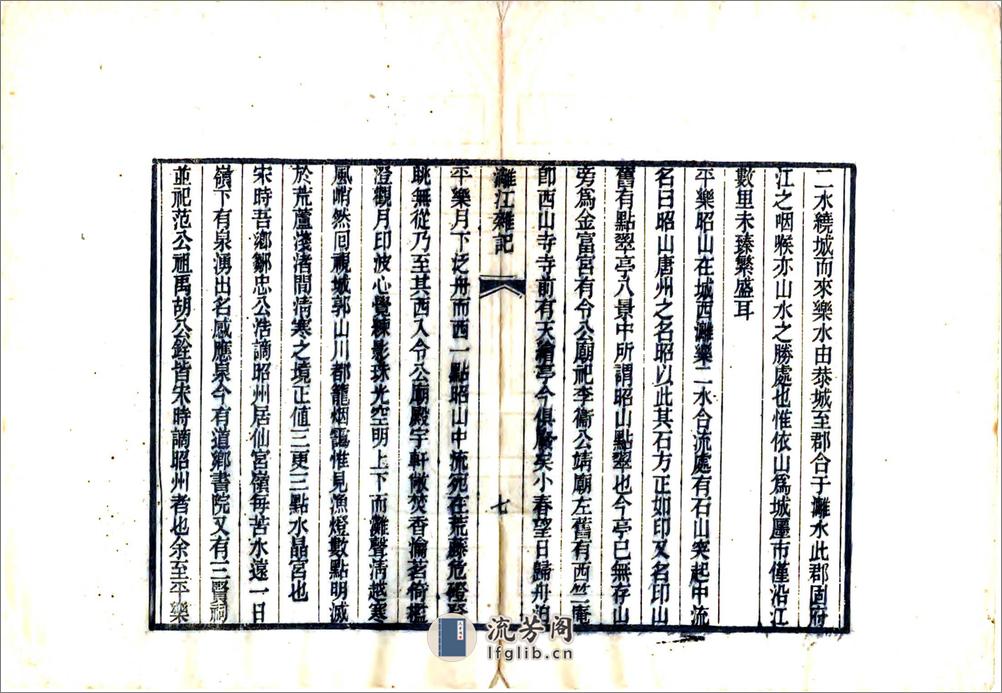 二水繞城而來樂水由恭城至郡合于灕水此郡固府
江之咽喉亦山水之勝處也惟依山爲城廛市僅沿江
數里未臻繁盛耳
平樂昭山在城西灕樂二水合流處有石山突起中流
名曰昭山唐州之名昭以此其石方正如印又名印山
舊有點翠亭八景中所謂昭山點翠也今亭已無存山
旁爲金富宮有令公廟祀李衞公靖廟左舊有西竺庵
卽西山寺寺前有天繪亭今俱廢矣小春望日歸舟泊
灕江雜記
七
平樂月下泛舟而西一點昭山中流宛在荒藤危磴
眺無從乃至其西入令公廟殿宇軒敞焚香瀹茗倚檻
澄觀月印波心覺練影珠光空明上下而灘聲淸越寒
風哨然回視城郭山川都籠烟靄惟見漁燈數點明滅
於荒蘆淺渚間淸寒之境正値三更三點水晶宮也
宋時吾鄕鄒忠公浩謫昭州居仙宮嶺每苦水遠一日
嶺下有泉湧出名感應泉今有道鄕書院又有三賢祠
並祀范公祖禹胡公銓皆宋時謫昭州者也余至平樂
流芳阁
lfglib.cn